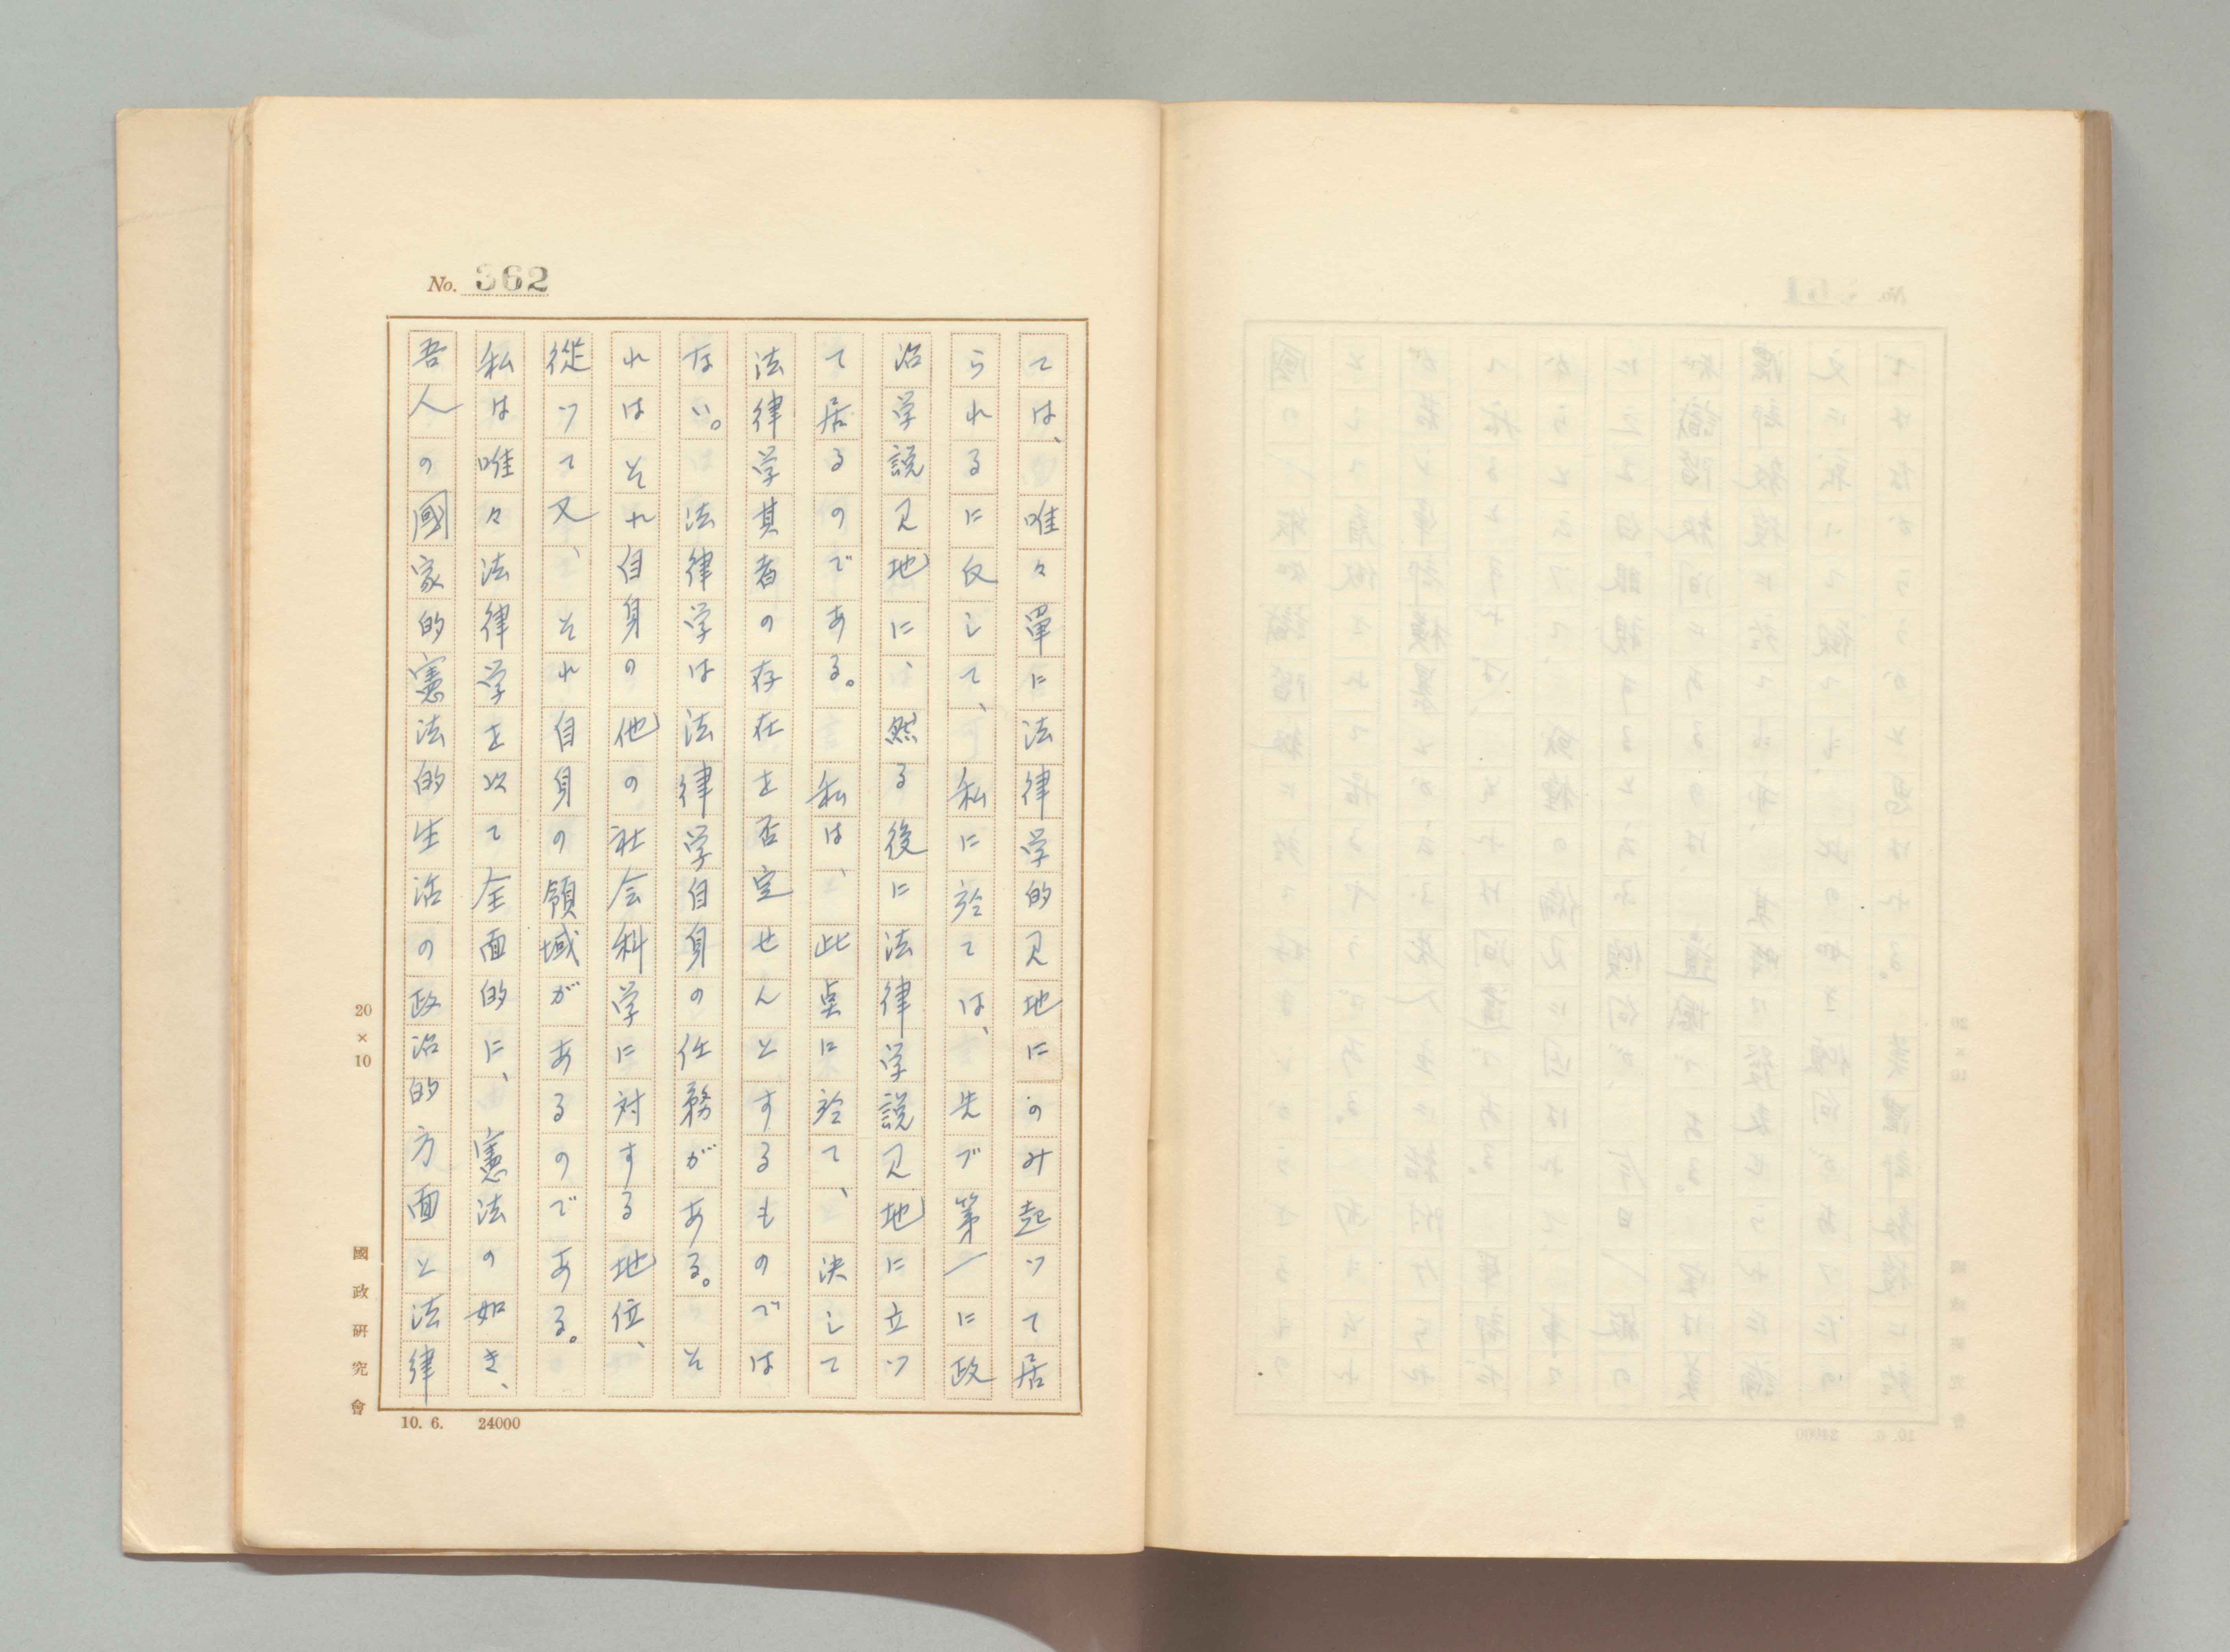 No. 362
ては、唯々單に法律学的見地にのみ起ツて居
られるに反して、私に於ては、先づ第一に政
治学説見地に、然る後に法律学説見地に立ツ
て居るのである。私は、此点に於て、決して
法律学其者の存在を否定せんとするものでは
ない。法律学は法律学自身の任務がある。そ
れはそれ自身の他の社会科学に対する地位、
従ツて又、それ自身の領域があるのである。
私は唯々法律学を以て全面的に、憲法の如き、
吾人の國家的憲法的生活の政治的方面と法律
20×10
國政研究會
10. 6. 24000